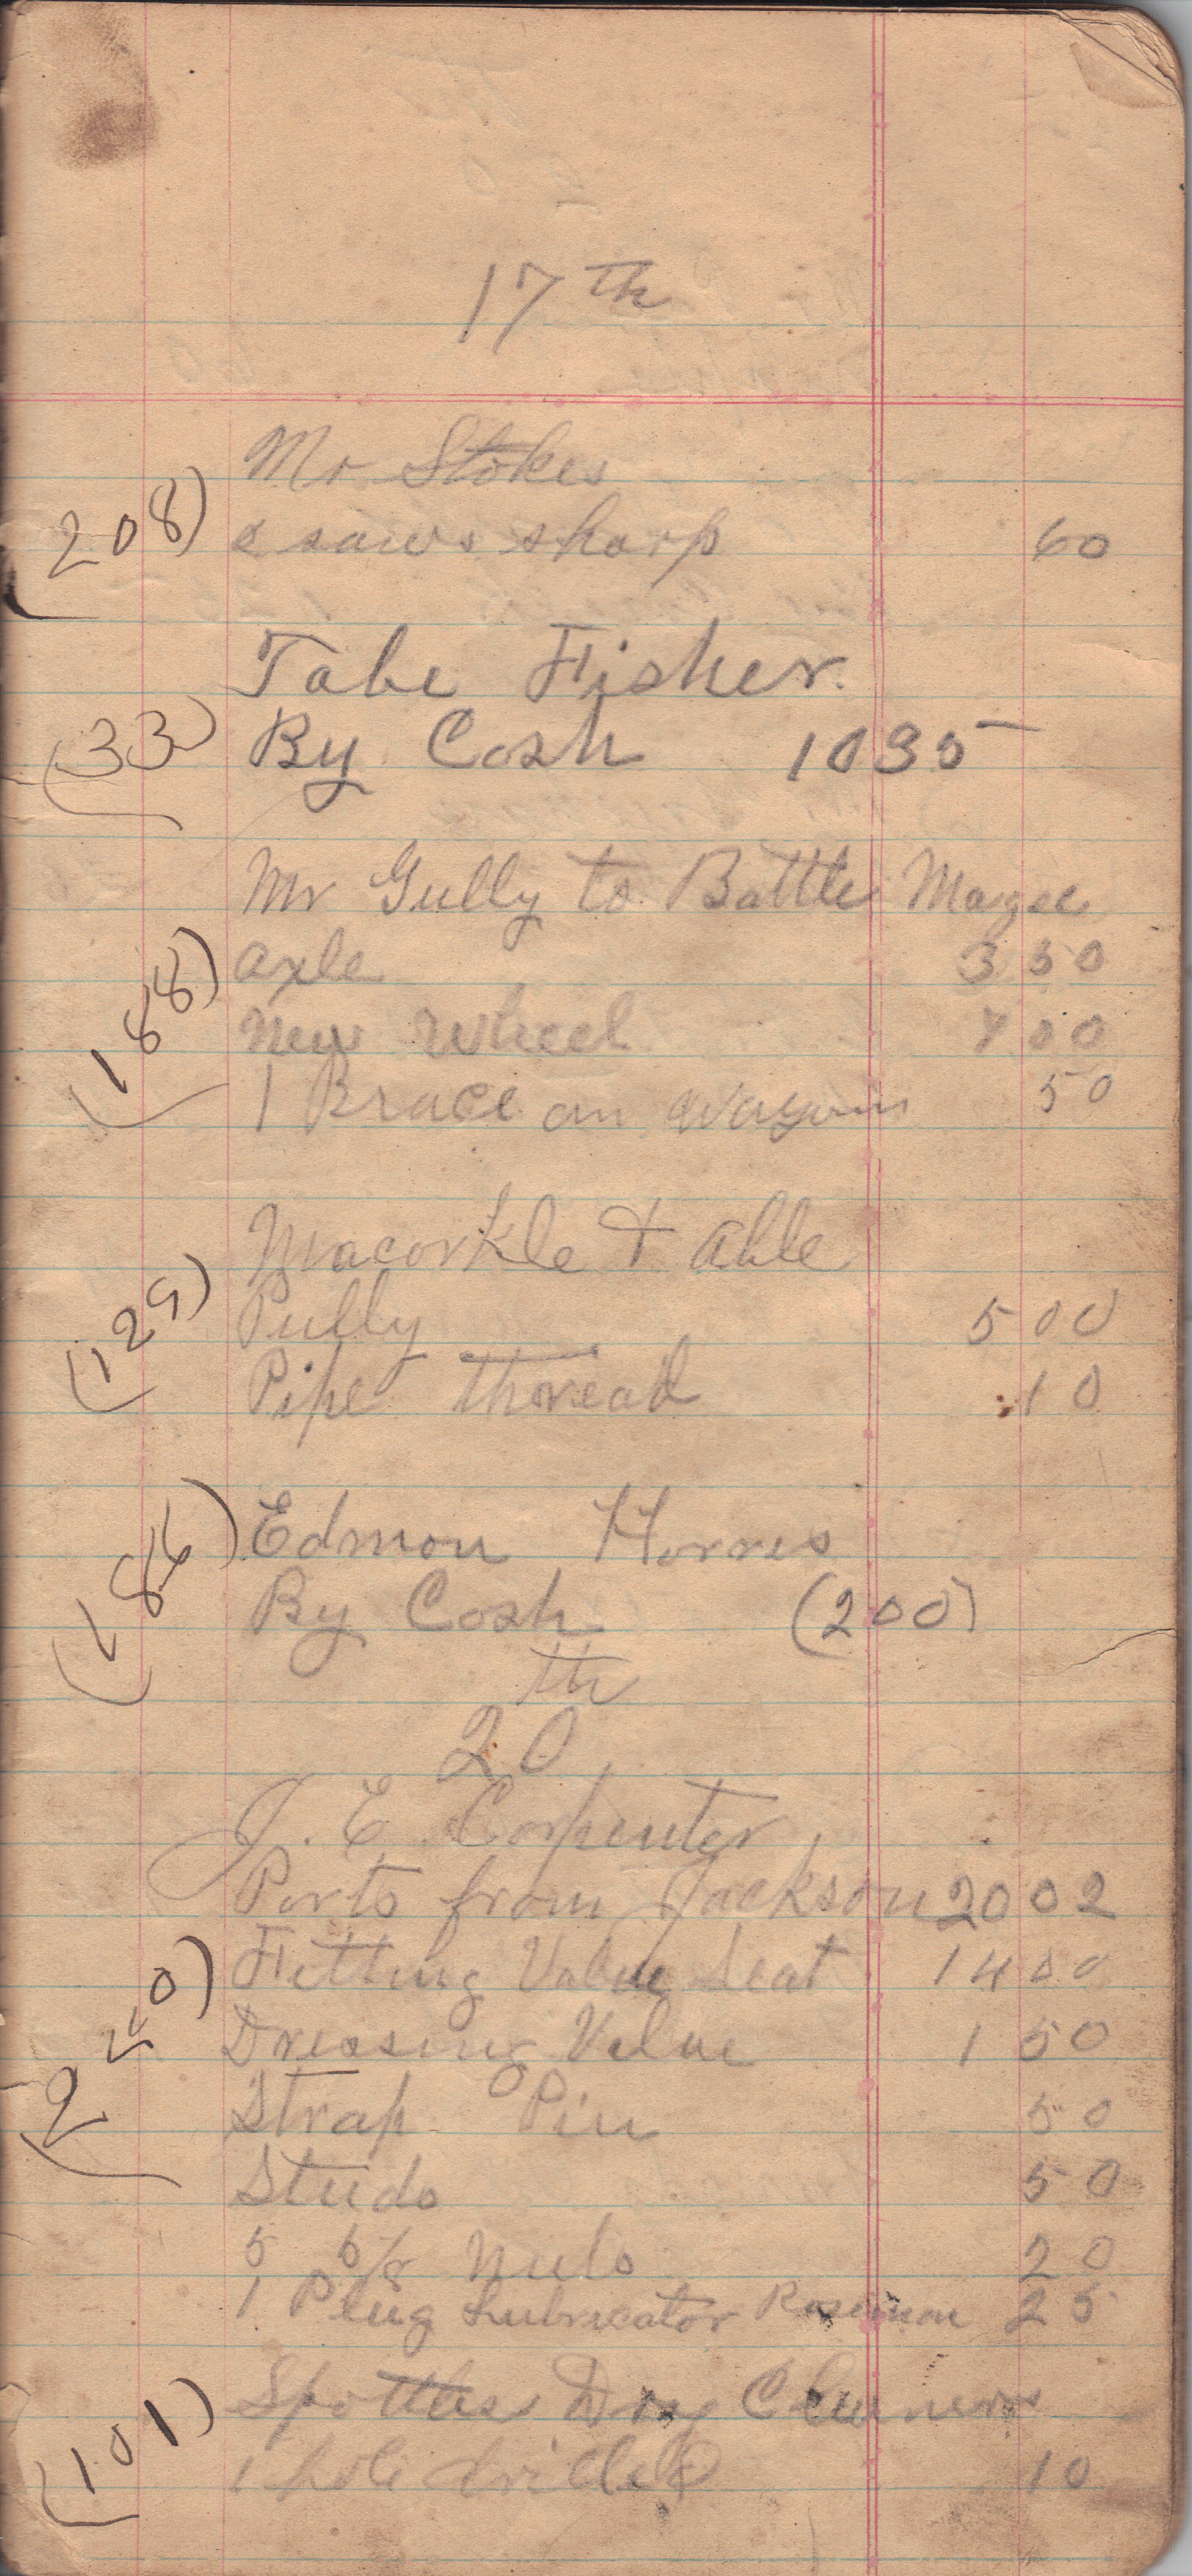 17th
Mr Stokes
(208) 2 saws sharp 60
Tabe Fisher.
(33) By Cash 1035
Mr Gully to Battle Magee
(188) axle 3 50
New Wheel 4 00
1 Brace on wagon 50
Macorkle & Able
(129) Pully 5 00
Pipe thread 10
(186) Edmon Harres
By Cash (200)
20th
J. E. Carpenter
Parts from Jackson 20 02
(220) Fitting Valve Seat 14 00
Dressing Valve 1 50
Strap Pin 50
Studs 50
5 5/8 Nuts 20
1 Plug Lubricator 25
Spottless Dry Cleaners
(101) 1 hole drilled 10